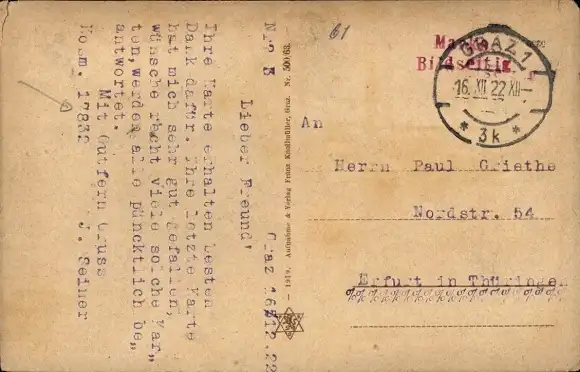 61
Nr? E
Graz 16/12.22
Lieber Freund'
Ihre Karte erhalten besten
Dank dafür. Ihre letzte Karte
hat mich sehr gut gefallen,
wünsche recht viele solche Kar„
ten,werden alle püncktlich be„
antwortet.
Mit Gutfern Gruss
Komm. 17832 J. Seimer
— 1919. Aufnahme & Verlag Franz Knollmüller, Graz. Nr. 500/63. —
Bildseitig
GRAZ 1
16. XII 22 XII
* 3k *
An
Herrn Paul Griethe
Nordstr. 54
Erfurt in Thüringen